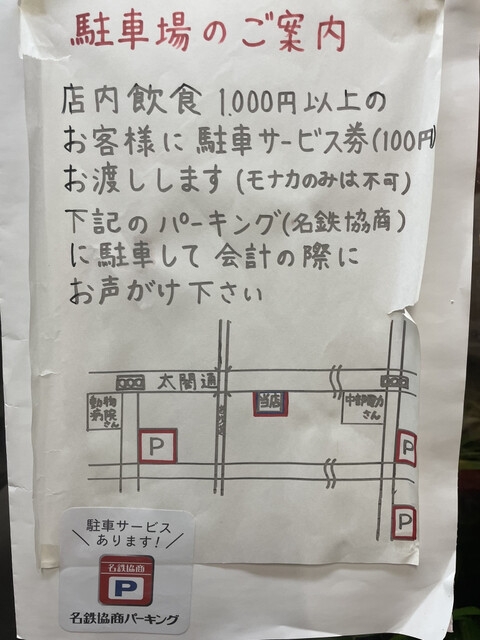 駐車場のご案内
店内飲食 1.000円以上の
お客様に 駐車サービス券(100円)
お渡しします(モナカのみは不可)
下記の パーキング(名鉄協商)
に駐車して 会計の際に
お声がけ下さい
太閤通
動物
病院さん
当店
中部電力
さん
P
P
P
駐車サービス
あります!
名鉄協商
P
名鉄協商パーキング